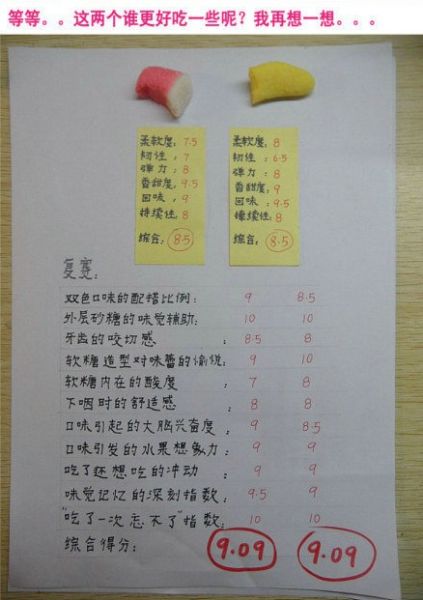 等等。。这两个谁更好吃一些呢？我再想一想。。。
柔软度：7.5
韧性，7
弹力：8
香甜度，9.5
回味，9
持续性8
综合：8.5
柔软度：8
韧性，6.5
弹力：8
香甜度：8
回味：9.5
持续性8
综合：8.5
复赛：
双色口味的配搭比例： 9 8.5
外层砂糖的味觉辅助： 10 10
牙齿的咬切感： 8.5 8
软糖造型对味蕾的愉悦： 9 10
软糖内在的酸度： 7 8
下咽时的舒适感： 8 8
口味引起的大脑兴奋度： 9 8.5
口味引发的水果想象力： 9 9
吃了还想吃的冲动： 9 9
味觉记忆的深刻指数， 9.5 9
"吃了一次忘不了"指数， 10 10
综合得分： 9.09 9.09